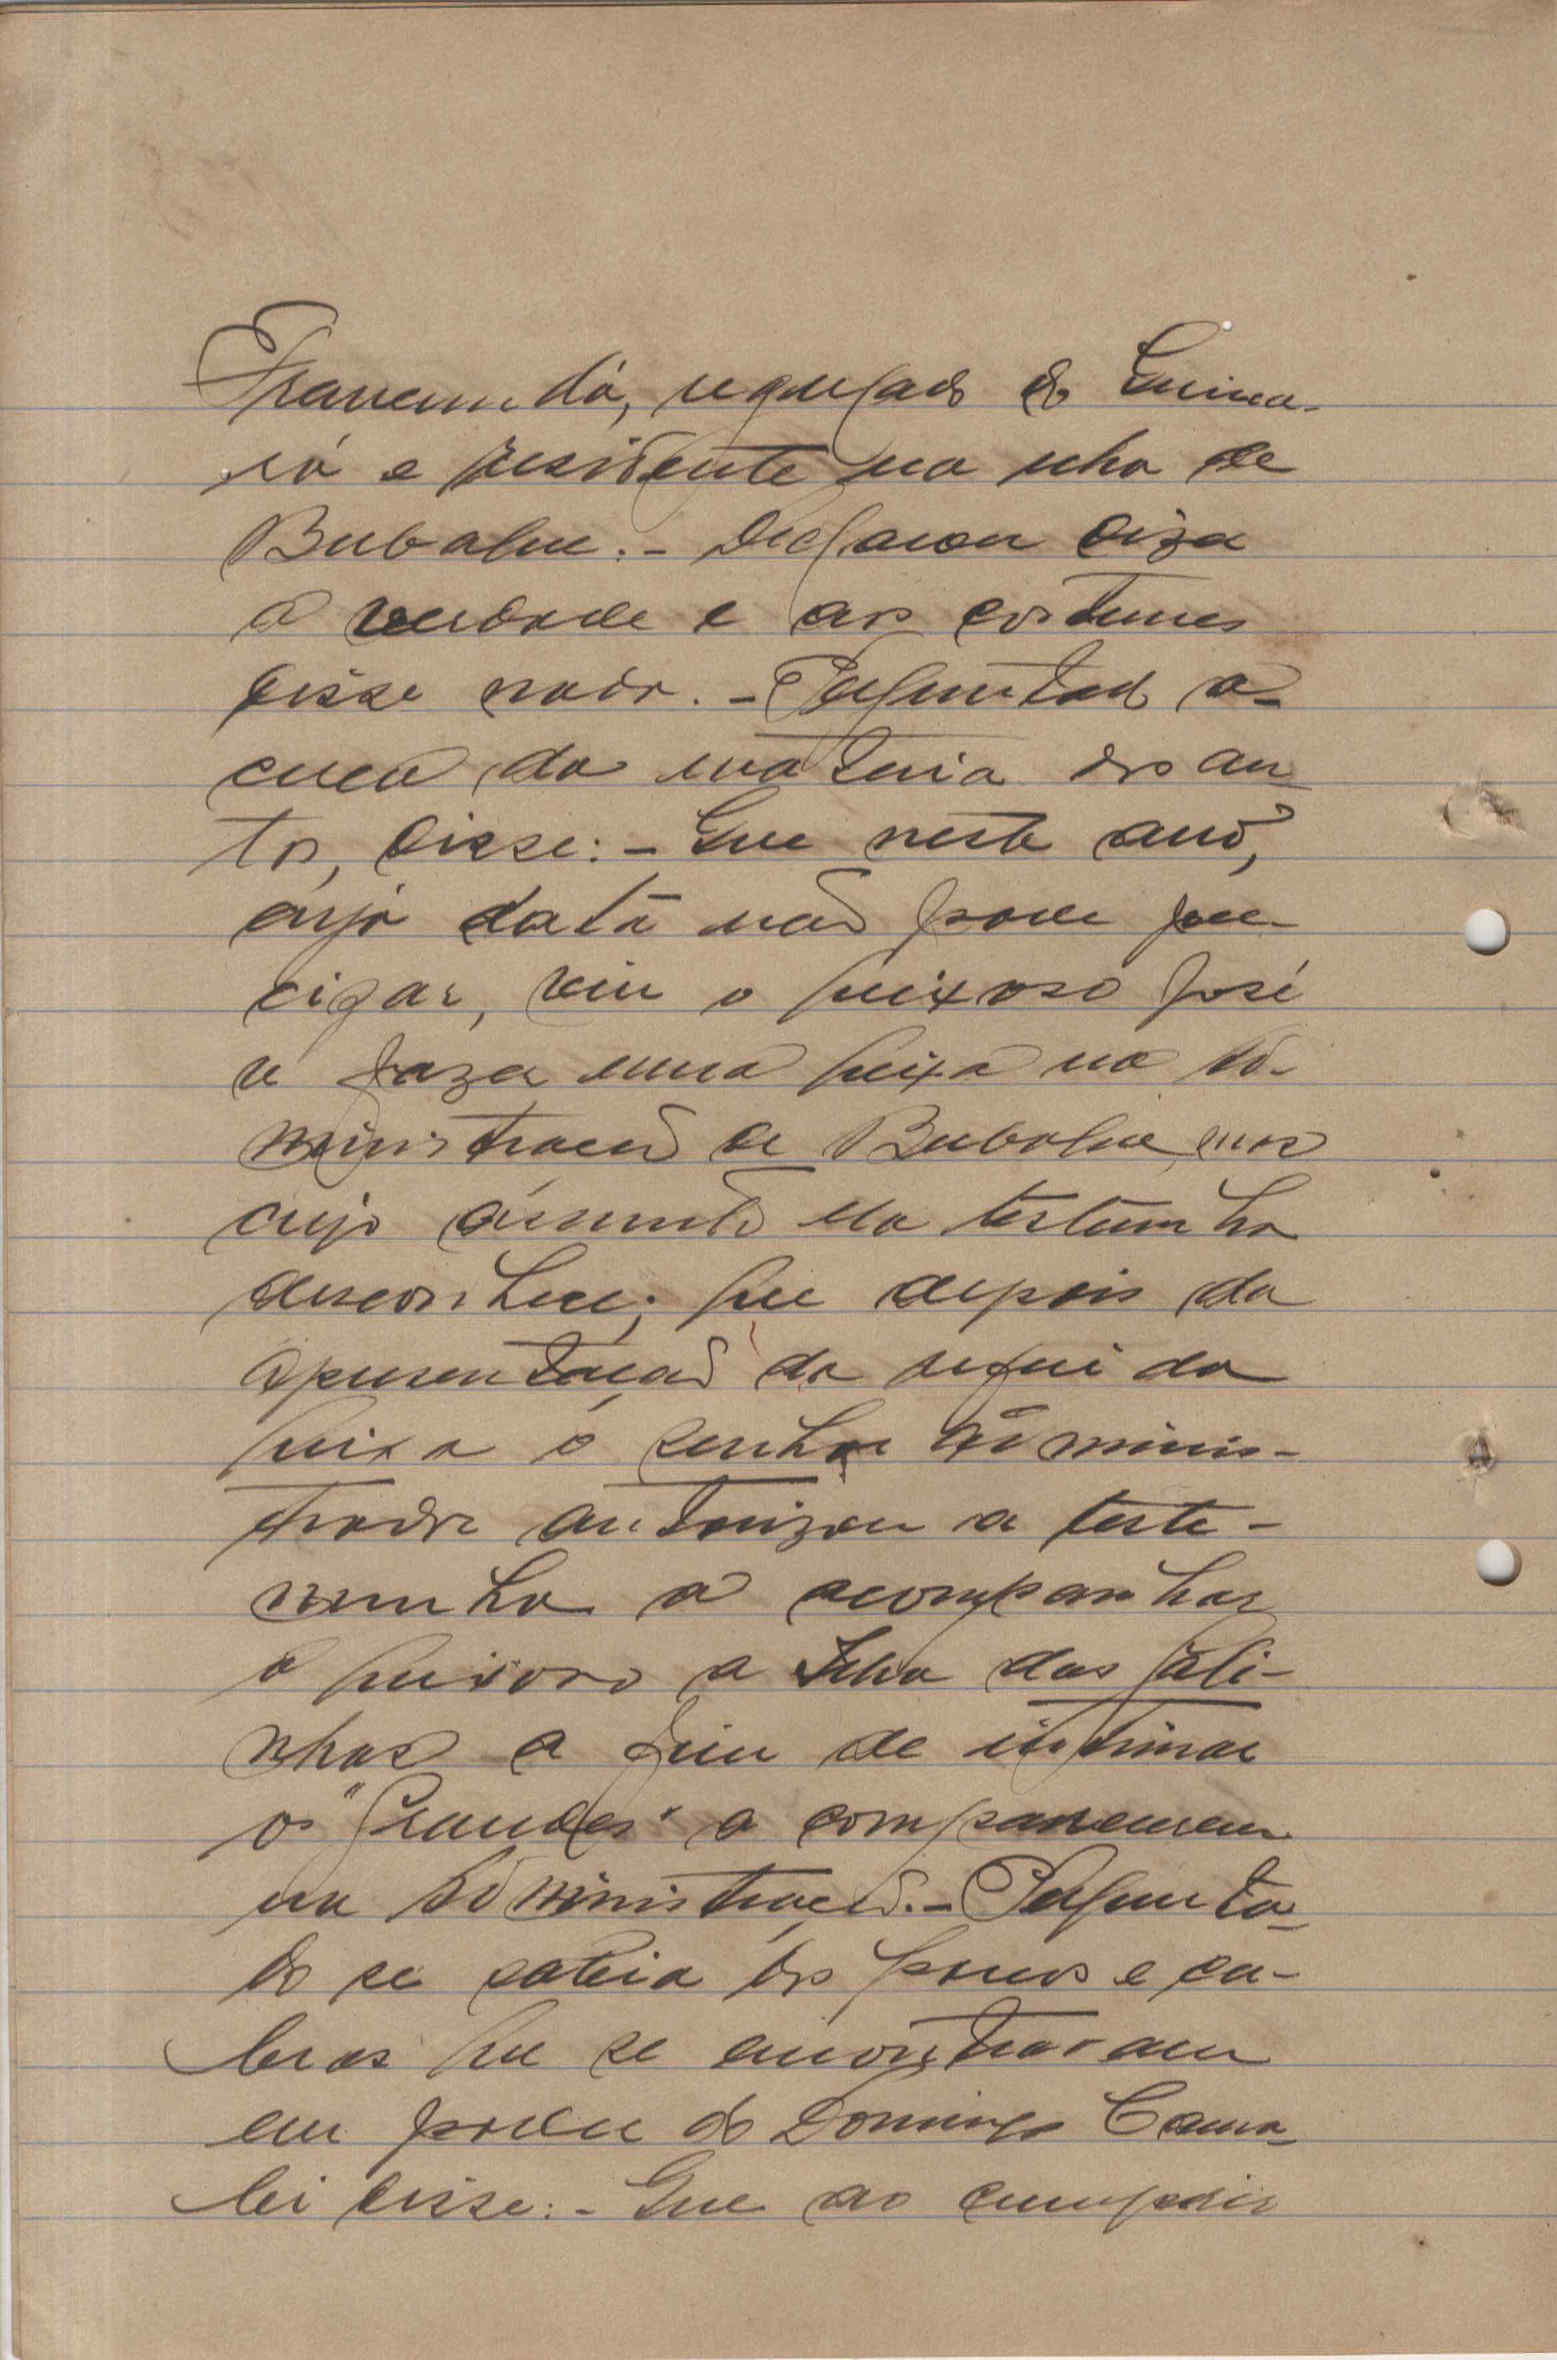 regulado de Guima-
rá e residente na ilha de
Bubaque. - Declarou dizer
a verdade e aos costumes
disse nada. - Perguntado a-
cerca da matéria dos au-
tos, disse: - Que neste ano,
cuja data não pode pre-
cizar, veiu o queixoso José
a fazer uma queixa na Ad-
ministração de Bubaque, mas
cujo assunto ela testemunha
desconhece; que depois da
apresentação da referida
queixa o senhor Adminis-
trador autorizou a teste-
munha a acompanhar
o queixoso a Ilha das Gali-
nhas a fim de intimar
os "Grandes" a comparecerem
na Administração. - Pergunta-
do se sabia dos porcos e ca-
bras que se encontravam
em poder do Domingo Cama-
lei disse: - Que ao cumprir